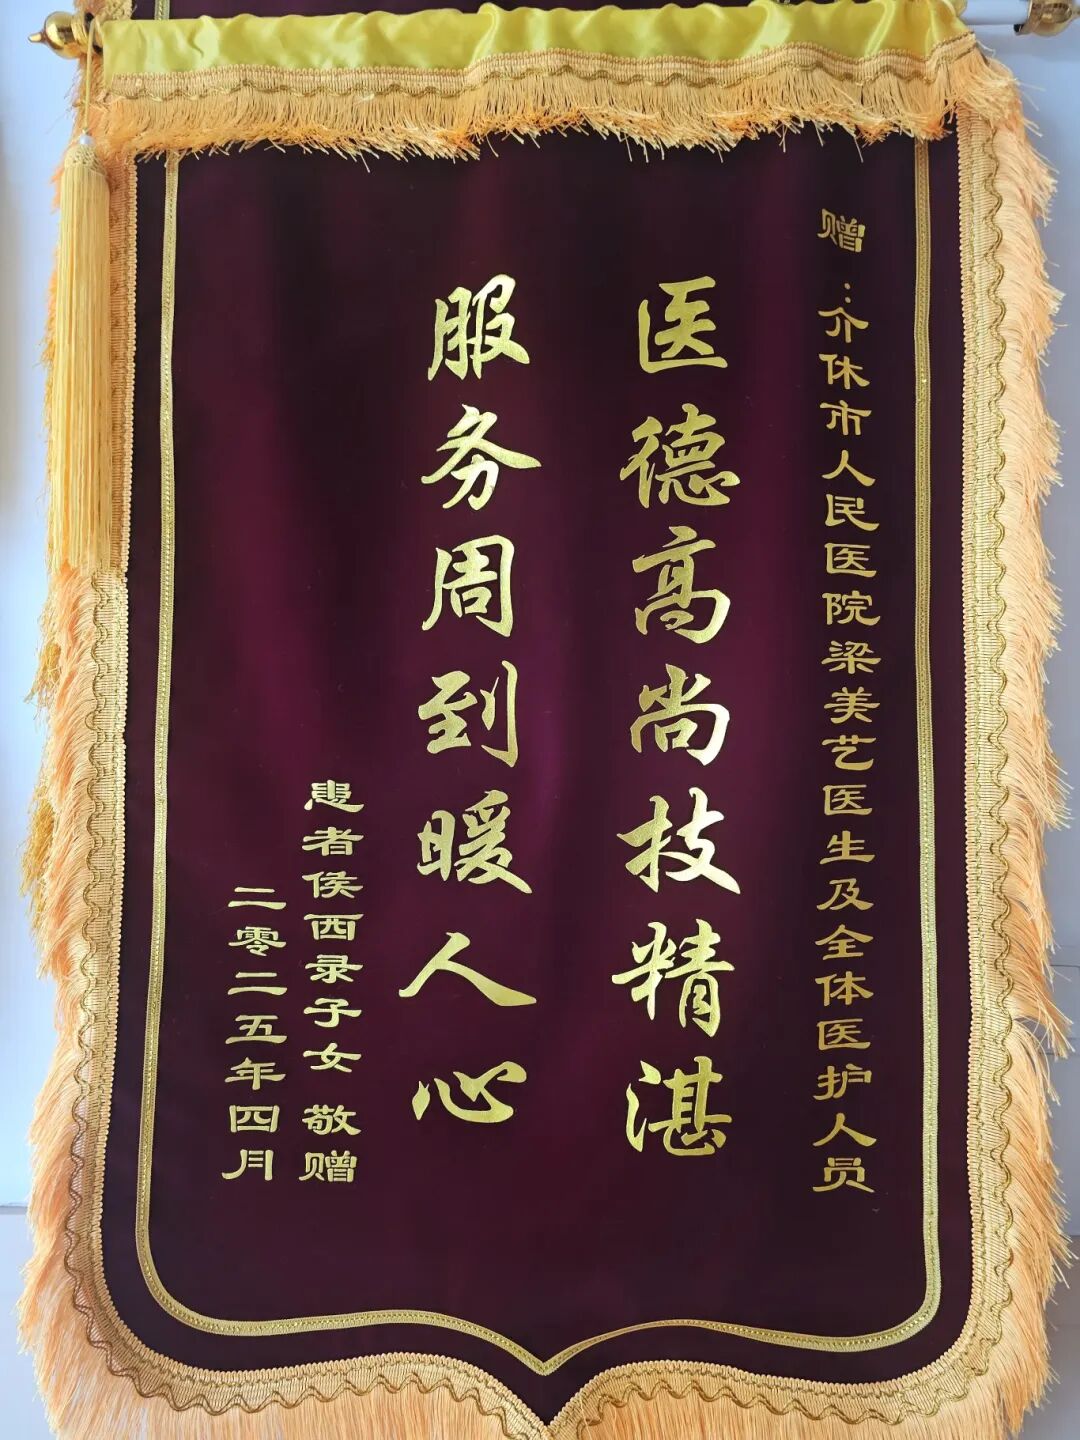 赠：介休市人民医院梁美艺医生及全体医护人员
医德高尚技精湛
服务周到暖人心
患者侯西录子女 敬赠
二零二五年四月